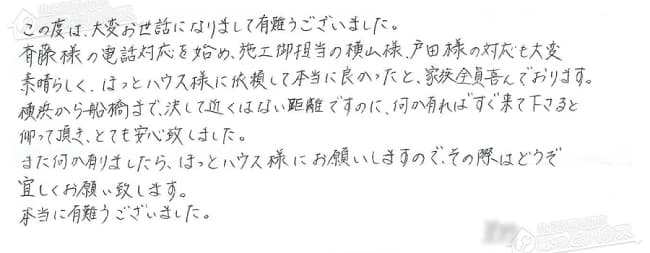 この度は、大変お世話になりまして有難うございました。
斉藤様の電話対応を始め、施工御担当の横山様、戸田様の対応も大変
素晴らしく、ほっとハウス様に依頼して本当に良かったと、家族全員喜んでおります。
横浜から船橋まで、決して近くはない距離ですのに、何か有ればすぐ来て下さると
仰って頂き、とても安心致しました。
また何か有りましたら、ほっとハウス様にお願いしますので、その際はどうぞ
宜しくお願い致します。
本当に有難うございました。